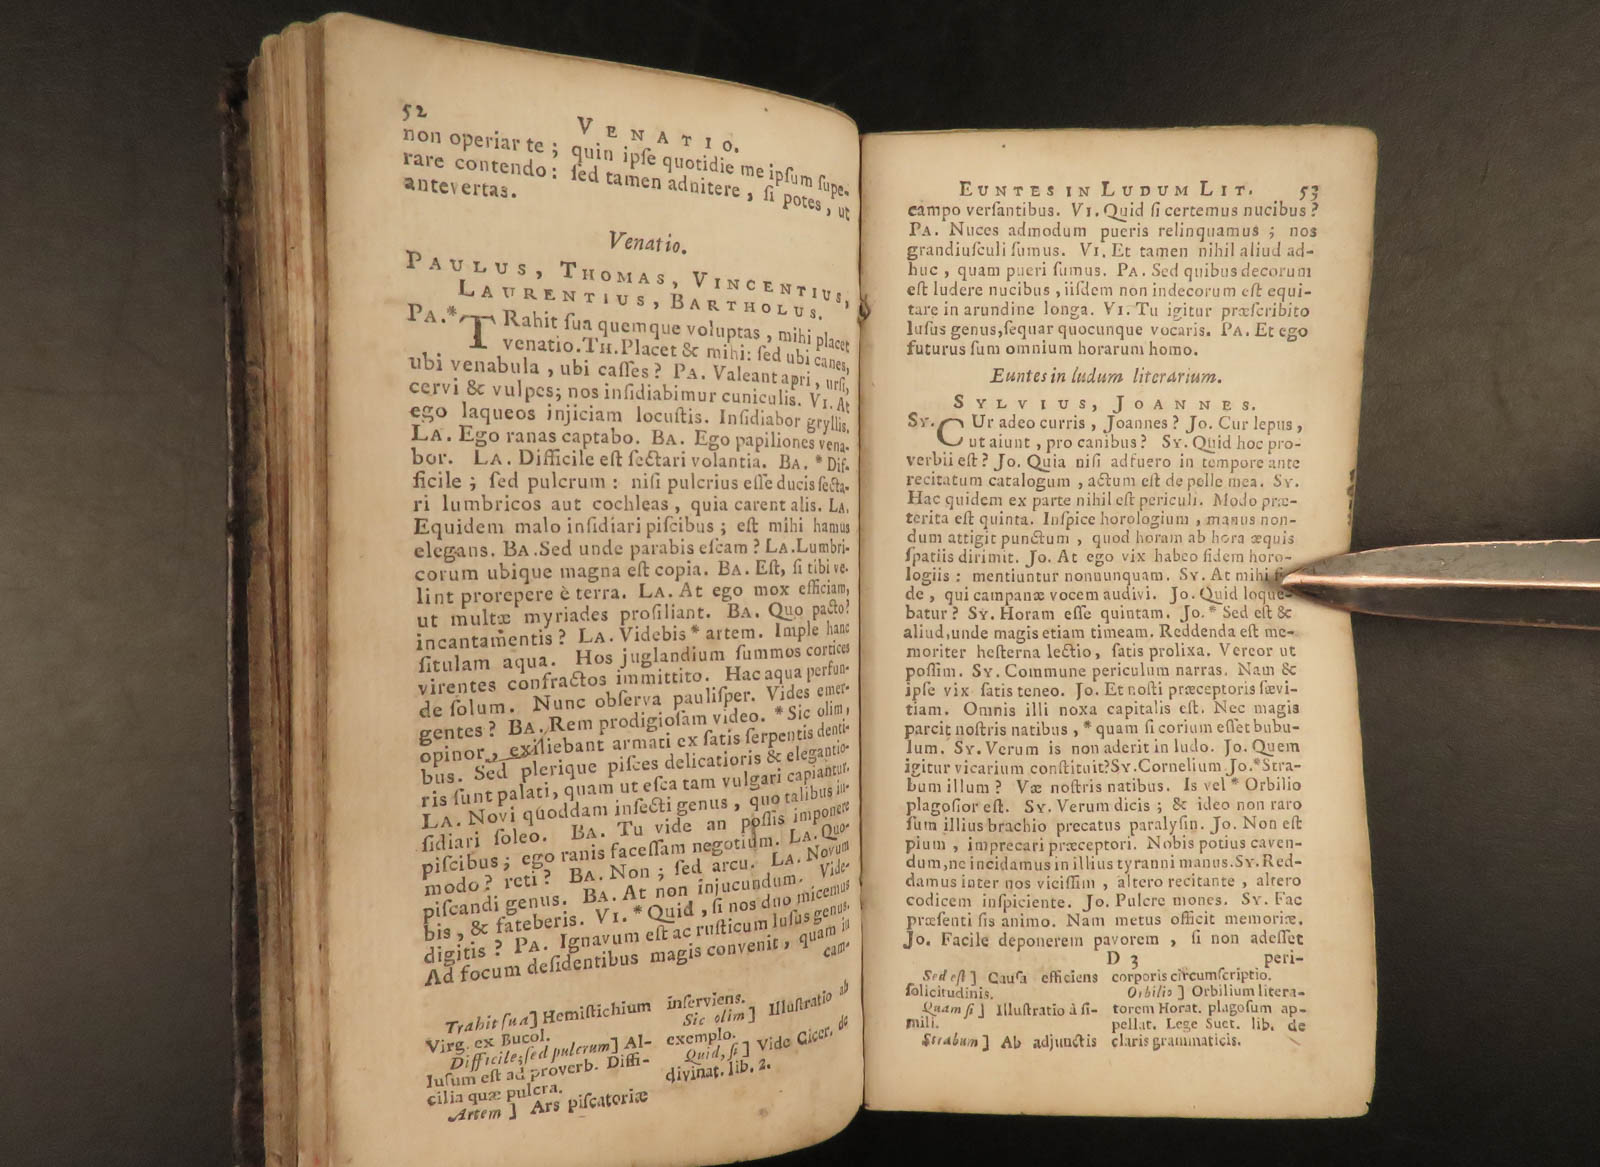 52
VENATIO.
non operiar te ; quin ipſe quotidie me ipſum ſupe-
rare contendo : ſed tamen adnitere , ſi potes , ut
antevertas.
Venatio.
PAULUS, THOMAS, VINCENTIUS,
LAURENTIUS, BARTHOLUS.
PA.* TRahit ſua quemque voluptas , mihi placet
venatio. TH. Placet & mihi : ſed ubi canes,
ubi venabula , ubi caſſes ? PA. Valeant apri , urſi,
cervi & vulpes; nos inſidiabimur cuniculis. VI. At
ego laqueos injiciam locuſtis. Inſidiabor gryllis.
LA. Ego ranas captabo. BA. Ego papiliones vena-
bor. LA. Difficile eſt ſectari volantia. BA. * Dif-
ficile ; ſed pulcrum : niſi pulcrius eſſe ducis ſecta-
ri lumbricos aut cochleas , quia carent alis. LA.
Equidem malo inſidiari piſcibus ; eſt mihi hamus
elegans. BA. Sed unde parabis eſcam ? LA. Lumbri-
corum ubique magna eſt copia. BA. Eſt, ſi tibi ve-
lint prorepere è terra. LA. At ego mox efficiam,
ut multæ myriades proſiliant. BA. Quo pacto?
incantamentis ? LA. Videbis * artem. Imple hanc
ſitulam aqua. Hos juglandium ſummos cortices
virentes confractos immittito. Hac aqua perfun-
de ſolum. Nunc obſerva pauliſper. Vides emer-
gentes ? BA. Rem prodigioſam video. * Sic olim,
opinor, exiliebant armati ex ſatis ſerpentis denti-
bus. Sed plerique piſces delicatioris & elegantio-
ris ſunt palati, quam ut eſca tam vulgari capiantur.
LA. Novi quoddam inſecti genus , quo talibus in-
ſidiari ſoleo. BA. Tu vide an poſſis imponere
piſcibus ; ego ranis faceſſam negotium. LA. Quo-
modo ? reti ? BA. Non ; ſed arcu. LA. Novum
piſcandi genus. BA. At non injucundum. Vide-
bis , & fateberis. VI. * Quid , ſi nos duo micemus
digitis ? PA. Ignavum eſt ac ruſticum luſus genus.
Ad focum deſidentibus magis convenit , quam in
cam-
Trahit ſua] Hemiſtichium
Virg. ex Bucol.
Difficile; ſed pulcrum] Al-
luſum eſt ad proverb. Diffi-
cilia quæ pulcra.
Artem ] Ars piſcatoriæ
inſerviens.
Sic olim ] Illuſtratio ab
exemplo.
Quid, ſi ] Vide Cicer. de
divinat. lib. 2.
EUNTES IN LUDUM LIT. 53
campo verſantibus. VI. Quid ſi certemus nucibus ?
PA. Nuces admodum pueris relinquamus ; nos
grandiuſculi ſumus. VI. Et tamen nihil aliud ad-
huc , quam pueri ſumus. PA. Sed quibus decorum
eſt ludere nucibus , iiſdem non indecorum eſt equi-
tare in arundine longa. VI. Tu igitur præſcribito
luſus genus, ſequar quocunque vocaris. PA. Et ego
futurus ſum omnium horarum homo.
Euntes in ludum literarium.
SYLVIUS, JOANNES.
SY. CUr adeo curris , Joannes ? JO. Cur lepus ,
ut aiunt , pro canibus ? SY. Quid hoc pro-
verbii eſt ? JO. Quia niſi adfuero in tempore ante
recitatum catalogum , actum eſt de pelle mea. SY.
Hac quidem ex parte nihil eſt periculi. Modo præ-
terita eſt quinta. Inſpice horologium , manus non-
dum attigit punctum , quod horam ab hora æquis
ſpatiis dirimit. JO. At ego vix habeo fidem horo-
logiis : mentiuntur nonnunquam. SY. At mihi
de , qui campanæ vocem audivi. JO. Quid loque-
batur ? SY. Horam eſſe quintam. JO. * Sed eſt &
aliud, unde magis etiam timeam. Reddenda eſt me-
moriter heſterna lectio, ſatis prolixa. Vereor ut
poſſim. SY. Commune periculum narras. Nam &
ipſe vix ſatis teneo. JO. Et noſti præceptoris ſævi-
tiam. Omnis illi noxa capitalis eſt. Nec magis
parcit noſtris natibus , * quam ſi corium eſſet bubu-
lum. SY. Verum is non aderit in ludo. JO. Quem
igitur vicarium conſtituit? SY. Cornelium. JO. * Stra-
bum illum ? Væ noſtris natibus. Is vel * Orbilio
plagoſior eſt. SY. Verum dicis ; & ideo non raro
ſum illius brachio precatus paralyſin. JO. Non eſt
pium , imprecari præceptori. Nobis potius caven-
dum, ne incidamus in illius tyranni manus. SY. Red-
damus inter nos viciſſim , altero recitante , altero
codicem inſpiciente. JO. Pulcre mones. SY. Fac
præſenti ſis animo. Nam metus officit memoriæ.
JO. Facile deponerem pavorem , ſi non adeſſet
D 3 peri-
Sed eſt ] Cauſa efficiens
ſolicitudinis.
Quam ſi ] Illuſtratio à ſi-
mili.
Strabum ] Ab adjunctis
corporis circumſcriptio.
Orbilio ] Orbilium litera-
torem Horat. plagoſum ap-
pellat. Lege Suet. lib. de
claris grammaticis.